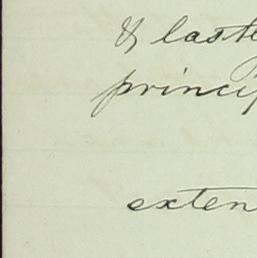 & laste
princip
exten